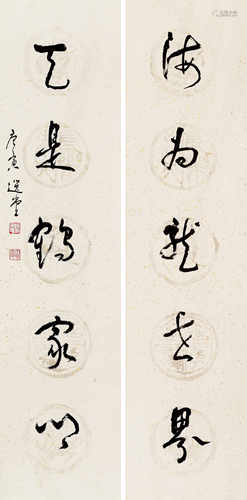 海为龙世界
天是鹤家乡
庚寅 选堂